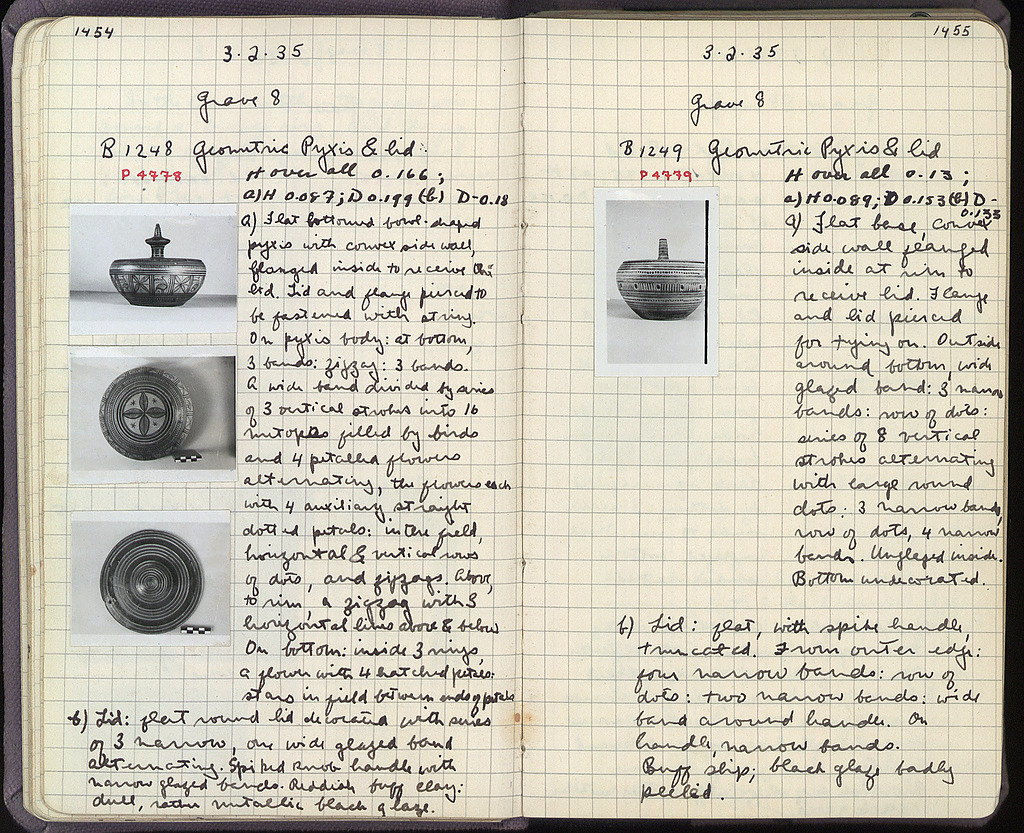 1454
3·2·35
Grave 8
B 1248 Geometric Pyxis & lid:
P 4778
H over all 0.166;
a) H 0.087; D 0.199 (b) D-0.18
a) Flat bottomed bowl-shaped
pyxis with convex side wall,
flanged inside to receive the
lid. Lid and flange pierced to
be fastened with string.
On pyxis body: at bottom,
3 bands: zigzag: 3 bands.
A wide band divided by series
of 3 vertical strokes into 16
metopes filled by birds
and 4 petalled flowers
alternating, the flowers each
with 4 auxiliary straight
dotted petals: in the field,
horizontal & vertical rows
of dots, and zigzags. Above,
to rim, a zigzag with 3
horizontal lines above & below
On bottom: inside 3 rings,
a flower with 4 hatched petals:
stars in field between ends of petals
b) Lid: flat round lid decorated with series
of 3 narrow, one wide glazed band
alternating. Spiked knob handle with
narrow glazed bands. Reddish buff clay:
dull, rather metallic black glaze.
1455
3·2·35
Grave 8
B 1249 Geometric Pyxis & lid
P 4779
H over all 0.13;
a) H 0.089; D 0.153 (b) D-
0.133
a) Flat base, convex
side wall flanged
inside at rim to
receive lid. Flange
and lid pierced
for tying on. Outside
around bottom, wide
glazed band: 3 narrow
bands: row of dots:
series of 8 vertical
strokes alternating
with large round
dots: 3 narrow bands,
row of dots, 4 narrow
bands. Unglazed inside.
Bottom undecorated.
b) Lid: flat, with spike handle,
truncated. From outer edge:
four narrow bands: row of
dots: two narrow bands: wide
band around handle. On
handle, narrow bands.
Buff slip; black glaze badly
peeled.